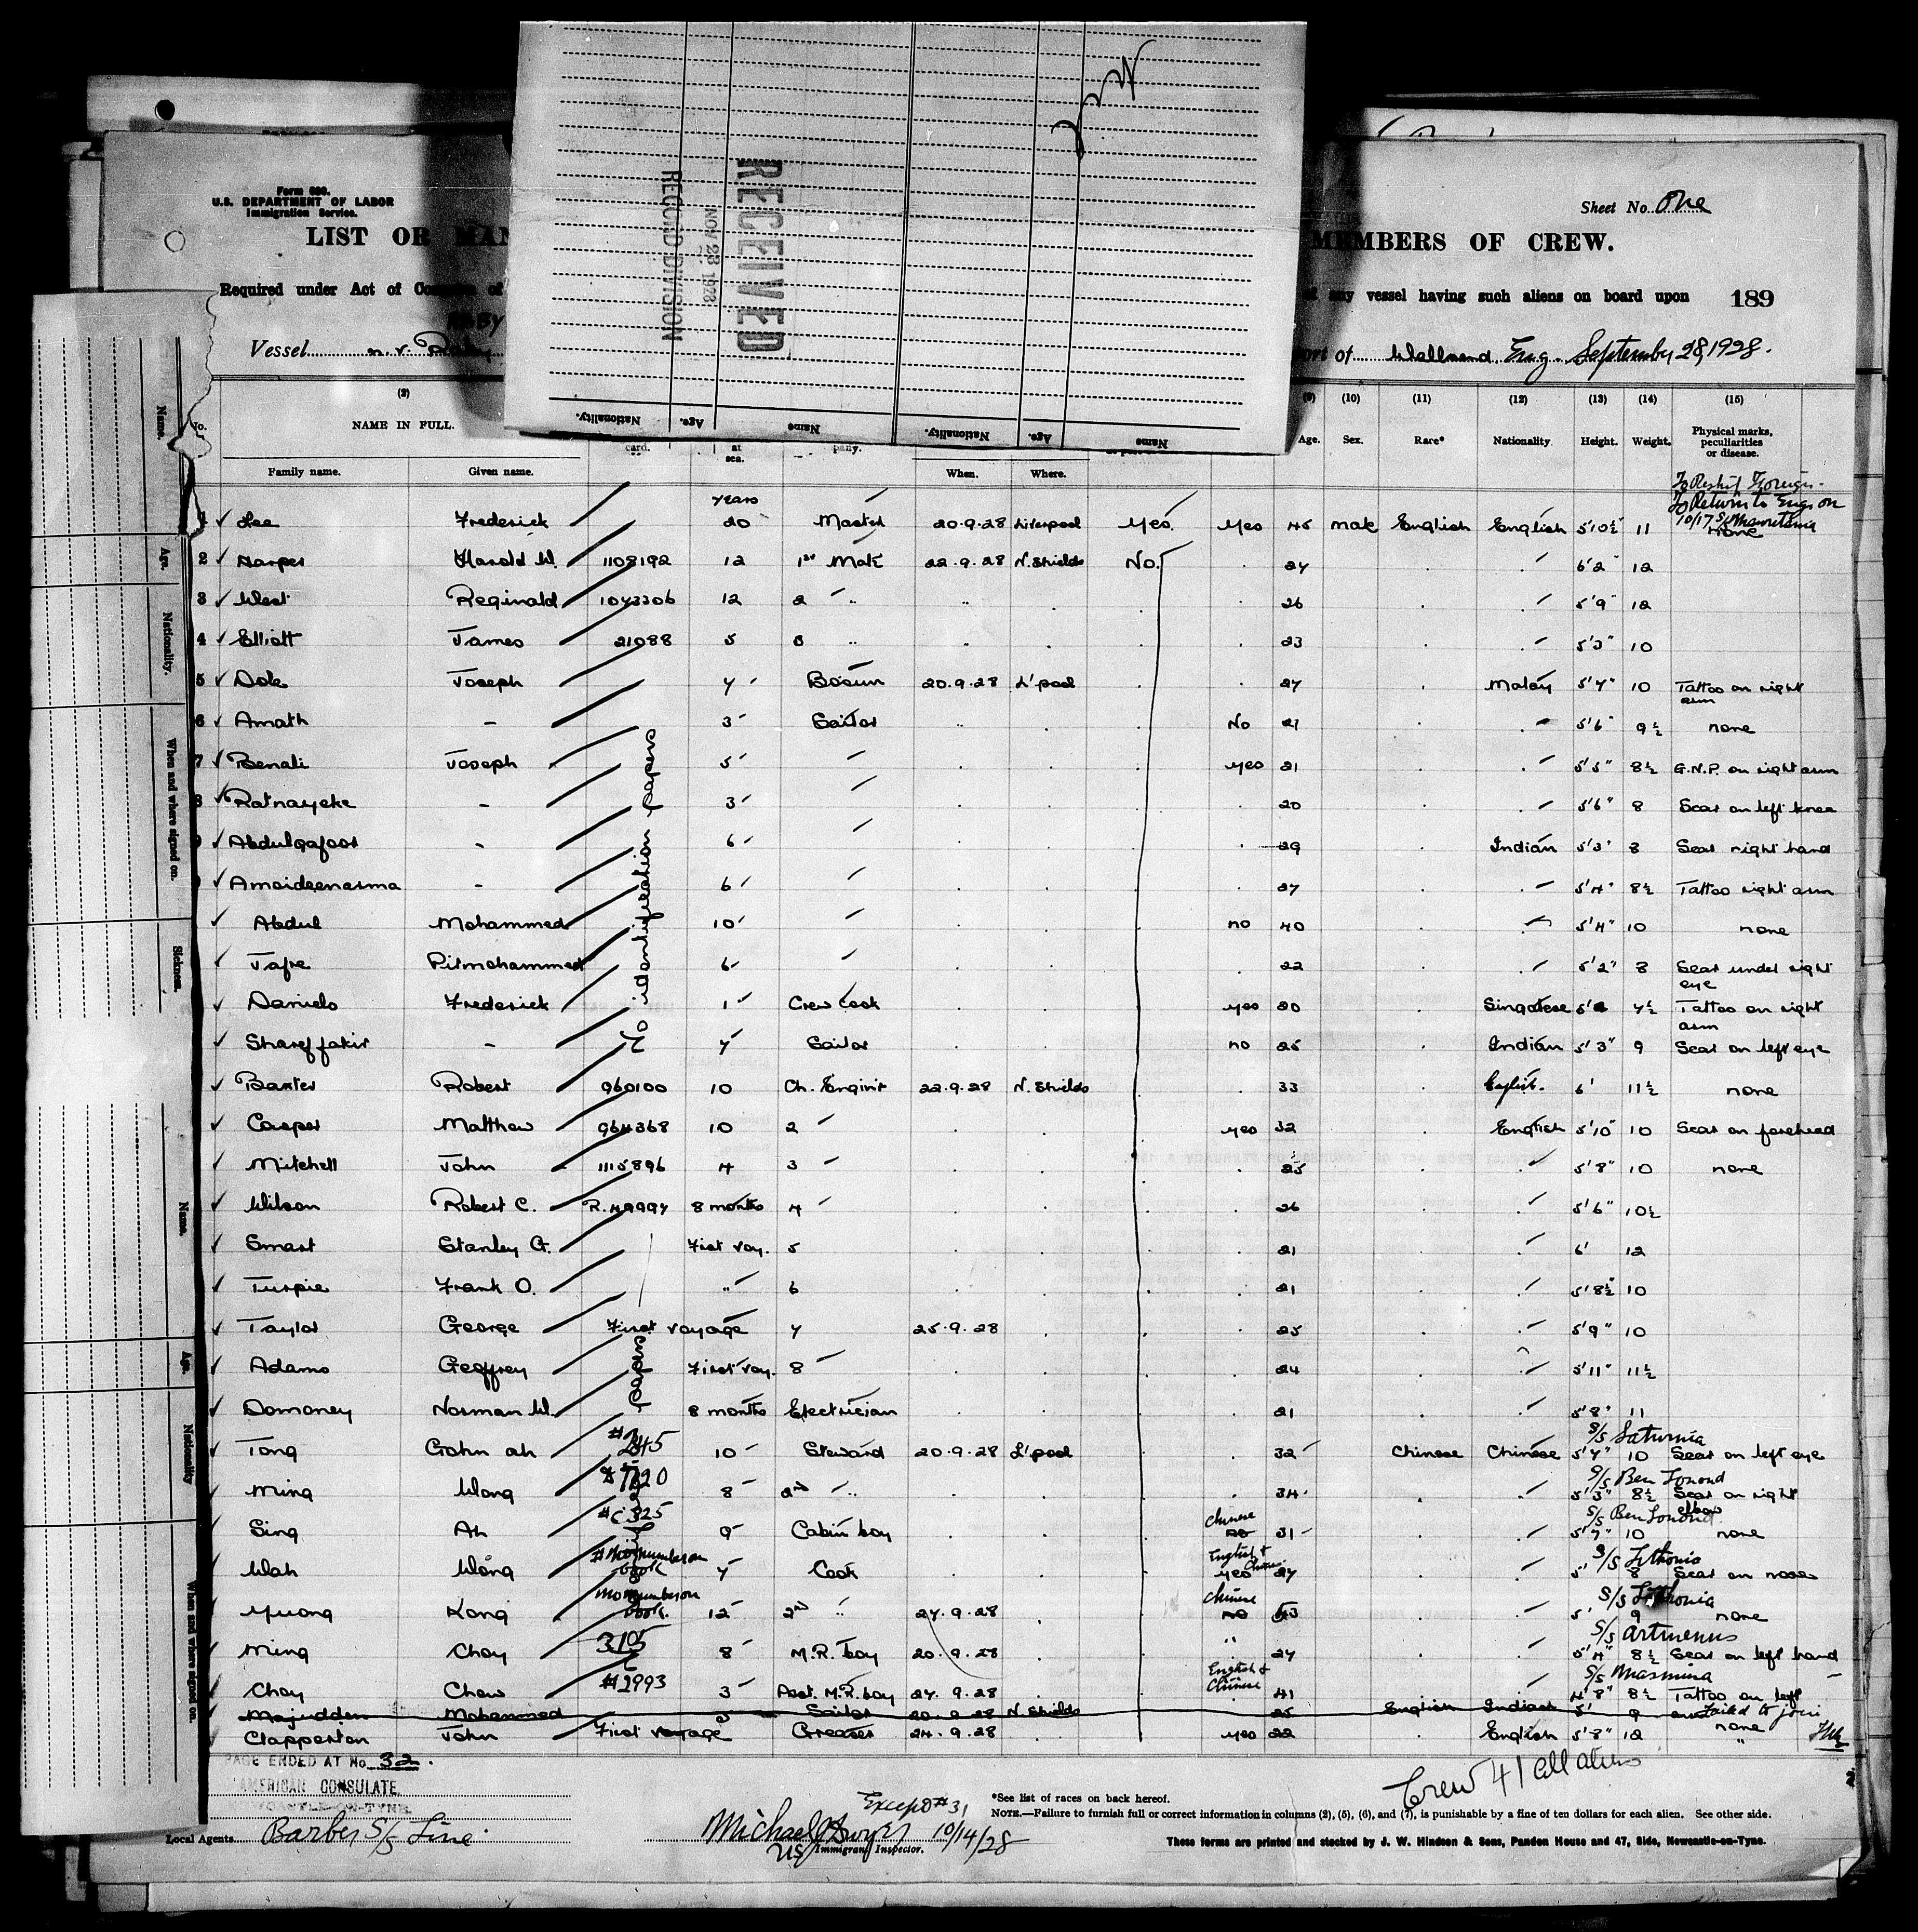 RECEIVED
NOV 23 1928
RECORD DIVISION
Nationality. Age. Name Nationality. Age. Name
Form 680.
U.S. DEPARTMENT OF LABOR
Immigration Service.
Sheet No. One
LIST OR MAN
MEMBERS OF CREW.
Required under Act of Congress of
any vessel having such aliens on board upon 189
Vessel m.v. Raby
port of Wallsend Eng. September 28, 1928.
(2) (9) (10) (11) (12) (13) (14) (15)
No. NAME IN FULL. card. at sea. pany. Age. Sex. Race* Nationality. Height. Weight. Physical marks, peculiarities or disease.
Family name. Given name. When. Where.
To Reship Foreign.
To Return to Eng on
10/17 S/S Mauretania
1 Lee Frederick years 20 Master 20.9.28 Liverpool Yes. Yes 45 male English English 5'10½" 11 none
2 Harper Harold W. 1108192 12 1st Mate 22.9.28 N. Shields No. 27 6'2" 12
3 West Reginald 1043306 12 2 " 26 5'9" 12
4 Elliott James 21088 5 3 " 23 5'3" 10
5 Dole Joseph 7 Bosun 20.9.28 L'pool 27 Malay 5'7" 10 Tattoo on right arm
6 Amath - 3 Sailor No 21 5'6" 9½ none
7 Benali Joseph 5 yes 21 5'5" 8½ G.N.P. on right arm
8 Ratnayeke - 3 20 5'6" 8 Scar on left knee
Abdulgafoor - 6 29 Indian 5'3" 8 Scar right hand
Ameideenarma - 6 27 5'4" 8½ Tattoo right arm
Abdul Mohammed 10 no 40 5'4" 10 none
Jafre Pirmohammed 6 22 5'2" 8 Scar under right eye
Daniels Frederick 1 Crew Cook yes 20 Singalese 7½ Tattoo on right arm
Shareffakir - 7 Sailor no 25 Indian 5'3" 9 Scar on left eye
No identification papers
Baxter Robert 960100 10 Ch. Engin'r 22.9.28 N. Shields 33 English. 6' 11½ none
Casper Matthew 964368 10 2 yes 32 English 5'10" 10 Scar on forehead
Mitchell John 1115896 4 3 25 5'8" 10 none
Wilson Robert C. R.49997 8 months 4 26 5'6" 10½
Smart Stanley G. First voy. 5 21 6' 12
Turpie Frank O. " 6 21 5'8½" 10
Taylor George First voyage 7 25.9.28 25 5'9" 10
Adams Geoffrey First voy. 8 24 5'11" 11½
Domoney Norman W. 8 months Electrician 21 5'8" 11
S/S Saturnia
Tong Gohn ah 10 Steward 20.9.28 L'pool 32 Chinese Chinese 5'7" 10 Scar on left eye
S/S Ben Lomond
Ming Wong 8 2nd " 34 5'3" 8½ Scar on right elbow
S/S Ben Lomond
Sing Ah 9 Cabin boy Chinese no 31 5'7" 10 none
S/S Lithonia
Wah Wong no number on book 7 Cook English & Chinese yes 27 5' 8 Scar on nose
S/S Lithonia
Yuong Kong no number on book. 12 2nd " 27.9.28 Chinese no 43 5' 9 none
S/S Artmenus
Ming Choy 8 M.R. boy 20.9.28 " 27 5'4" 8½ Scar on left hand
Choy Chew #2993 3 Asst. M.R. boy 27.9.28 English & Chinese 41 4'8" 8½ Tattoo on left arm
Majudden Mohammed 3 Sailor 20.9.28 N. Shields 25 English Indian 5' 9 Failed to join
Clapperton John First voyage Greaser 24.9.28 yes 22 English 5'8" 12 none
PAGE ENDED AT No. 32.
AMERICAN CONSULATE,
NEWCASTLE-ON-TYNE.
Crew 41 all aliens
Local Agents Barber S/S Line
Except #31
Michael Dwyer 10/14/28
US Immigrant Inspector.
*See list of races on back hereof.
NOTE.—Failure to furnish full or correct information in columns (2), (5), (6), and (7), is punishable by a fine of ten dollars for each alien. See other side.
These forms are printed and stocked by J. W. Hindson & Sons, Pandon House and 47, Side, Newcastle-on-Tyne.
Name.
Age.
Nationality.
When and where signed on.
Sickness.
Name.
Age.
Nationality
When and where signed on.